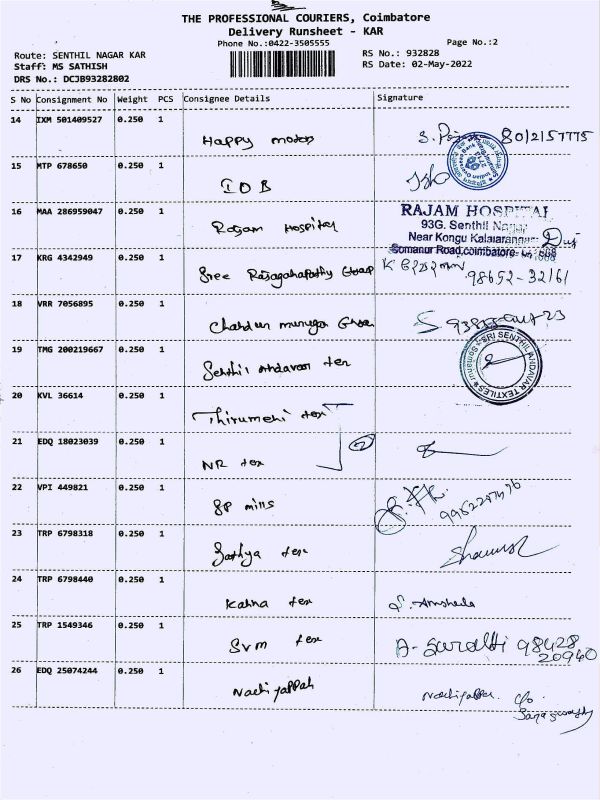 THE PROFESSIONAL COURIERS, Coimbatore
Delivery Runsheet - KAR
Phone No.:0422-3505555
Page No.:2
Route: SENTHIL NAGAR KAR
RS No.: 932828
Staff: MS SATHISH
RS Date: 02-May-2022
DRS No.: DCJB93282802
S No Consignment No Weight PCS Consignee Details Signature
14 IXM 501409527 0.250 1
Happy motors
15 MTP 678650 0.250 1
IOB
16 MAA 286959047 0.250 1
Rajam Hospital
RAJAM HOSPITAL
93G. Senthil Nagar
Near Kongu Kalaiarangam
Somanur Road,coimbatore
17 KRG 4342949 0.250 1
Sree
98652-32161
18 VRR 7056895 0.250 1
19 TMG 200219667 0.250 1
Senthil Andavar tex
SRI SENTHIL ANDAVAR TEXTILES
20 KVL 36614 0.250 1
Thirumeni tex
21 EDQ 18023039 0.250 1
NR tex
22 VPI 449821 0.250 1
SP mills
23 TRP 6798318 0.250 1
Sathya tex
24 TRP 6798440 0.250 1
tex
25 TRP 1549346 0.250 1
Svm tex
98428
20940
26 EDQ 25074244 0.250 1
Nachiyappah
c/o